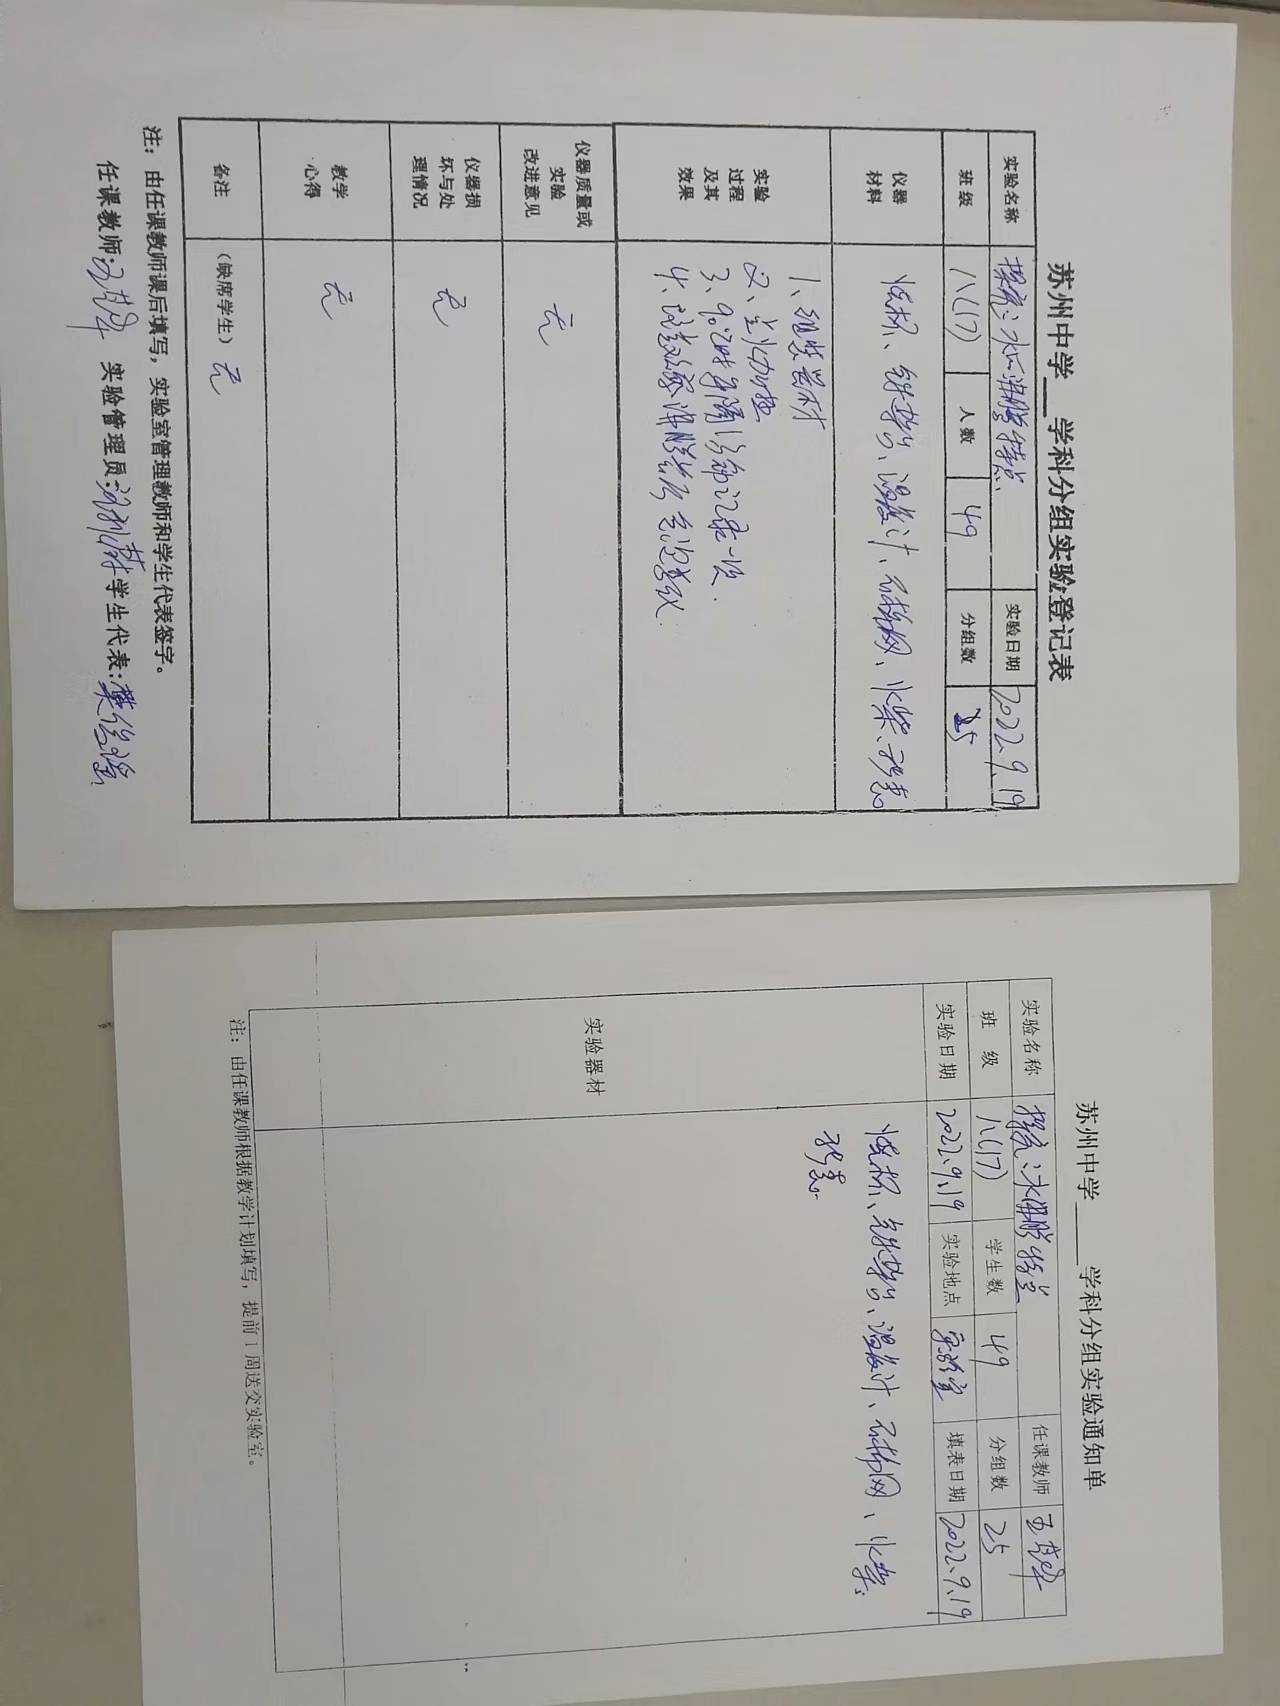 苏州中学__学科分组实验登记表
实验名称 探究:水的沸腾特点 实验日期 2022.9.19
班级 八(17) 人数 49 分组数 25
仪器材料 烧杯、铁架台、温度计、石棉网、火柴、秒表
实验过程及其效果
1、组装器材
2、点火加热
3、90℃时每隔1分钟记录一次.
4、
仪器质量或实验改进意见 无
仪器损坏与处理情况 无
教学心得 无
备注 (缺席学生) 无
注：由任课教师课后填写，实验室管理教师和学生代表签字。
任课教师: 实验管理员: 学生代表:
苏州中学____学科分组实验通知单
实验名称 探究:水沸腾特点 任课教师
班级 八(17) 学生数 49 分组数 25
实验日期 2022.9.19 实验地点 实验室 填表日期 2022.9.19
实验器材
烧杯、铁架台、温度计、石棉网、火柴、
秒表.
注：由任课教师根据教学计划填写，提前1周送交实验室。